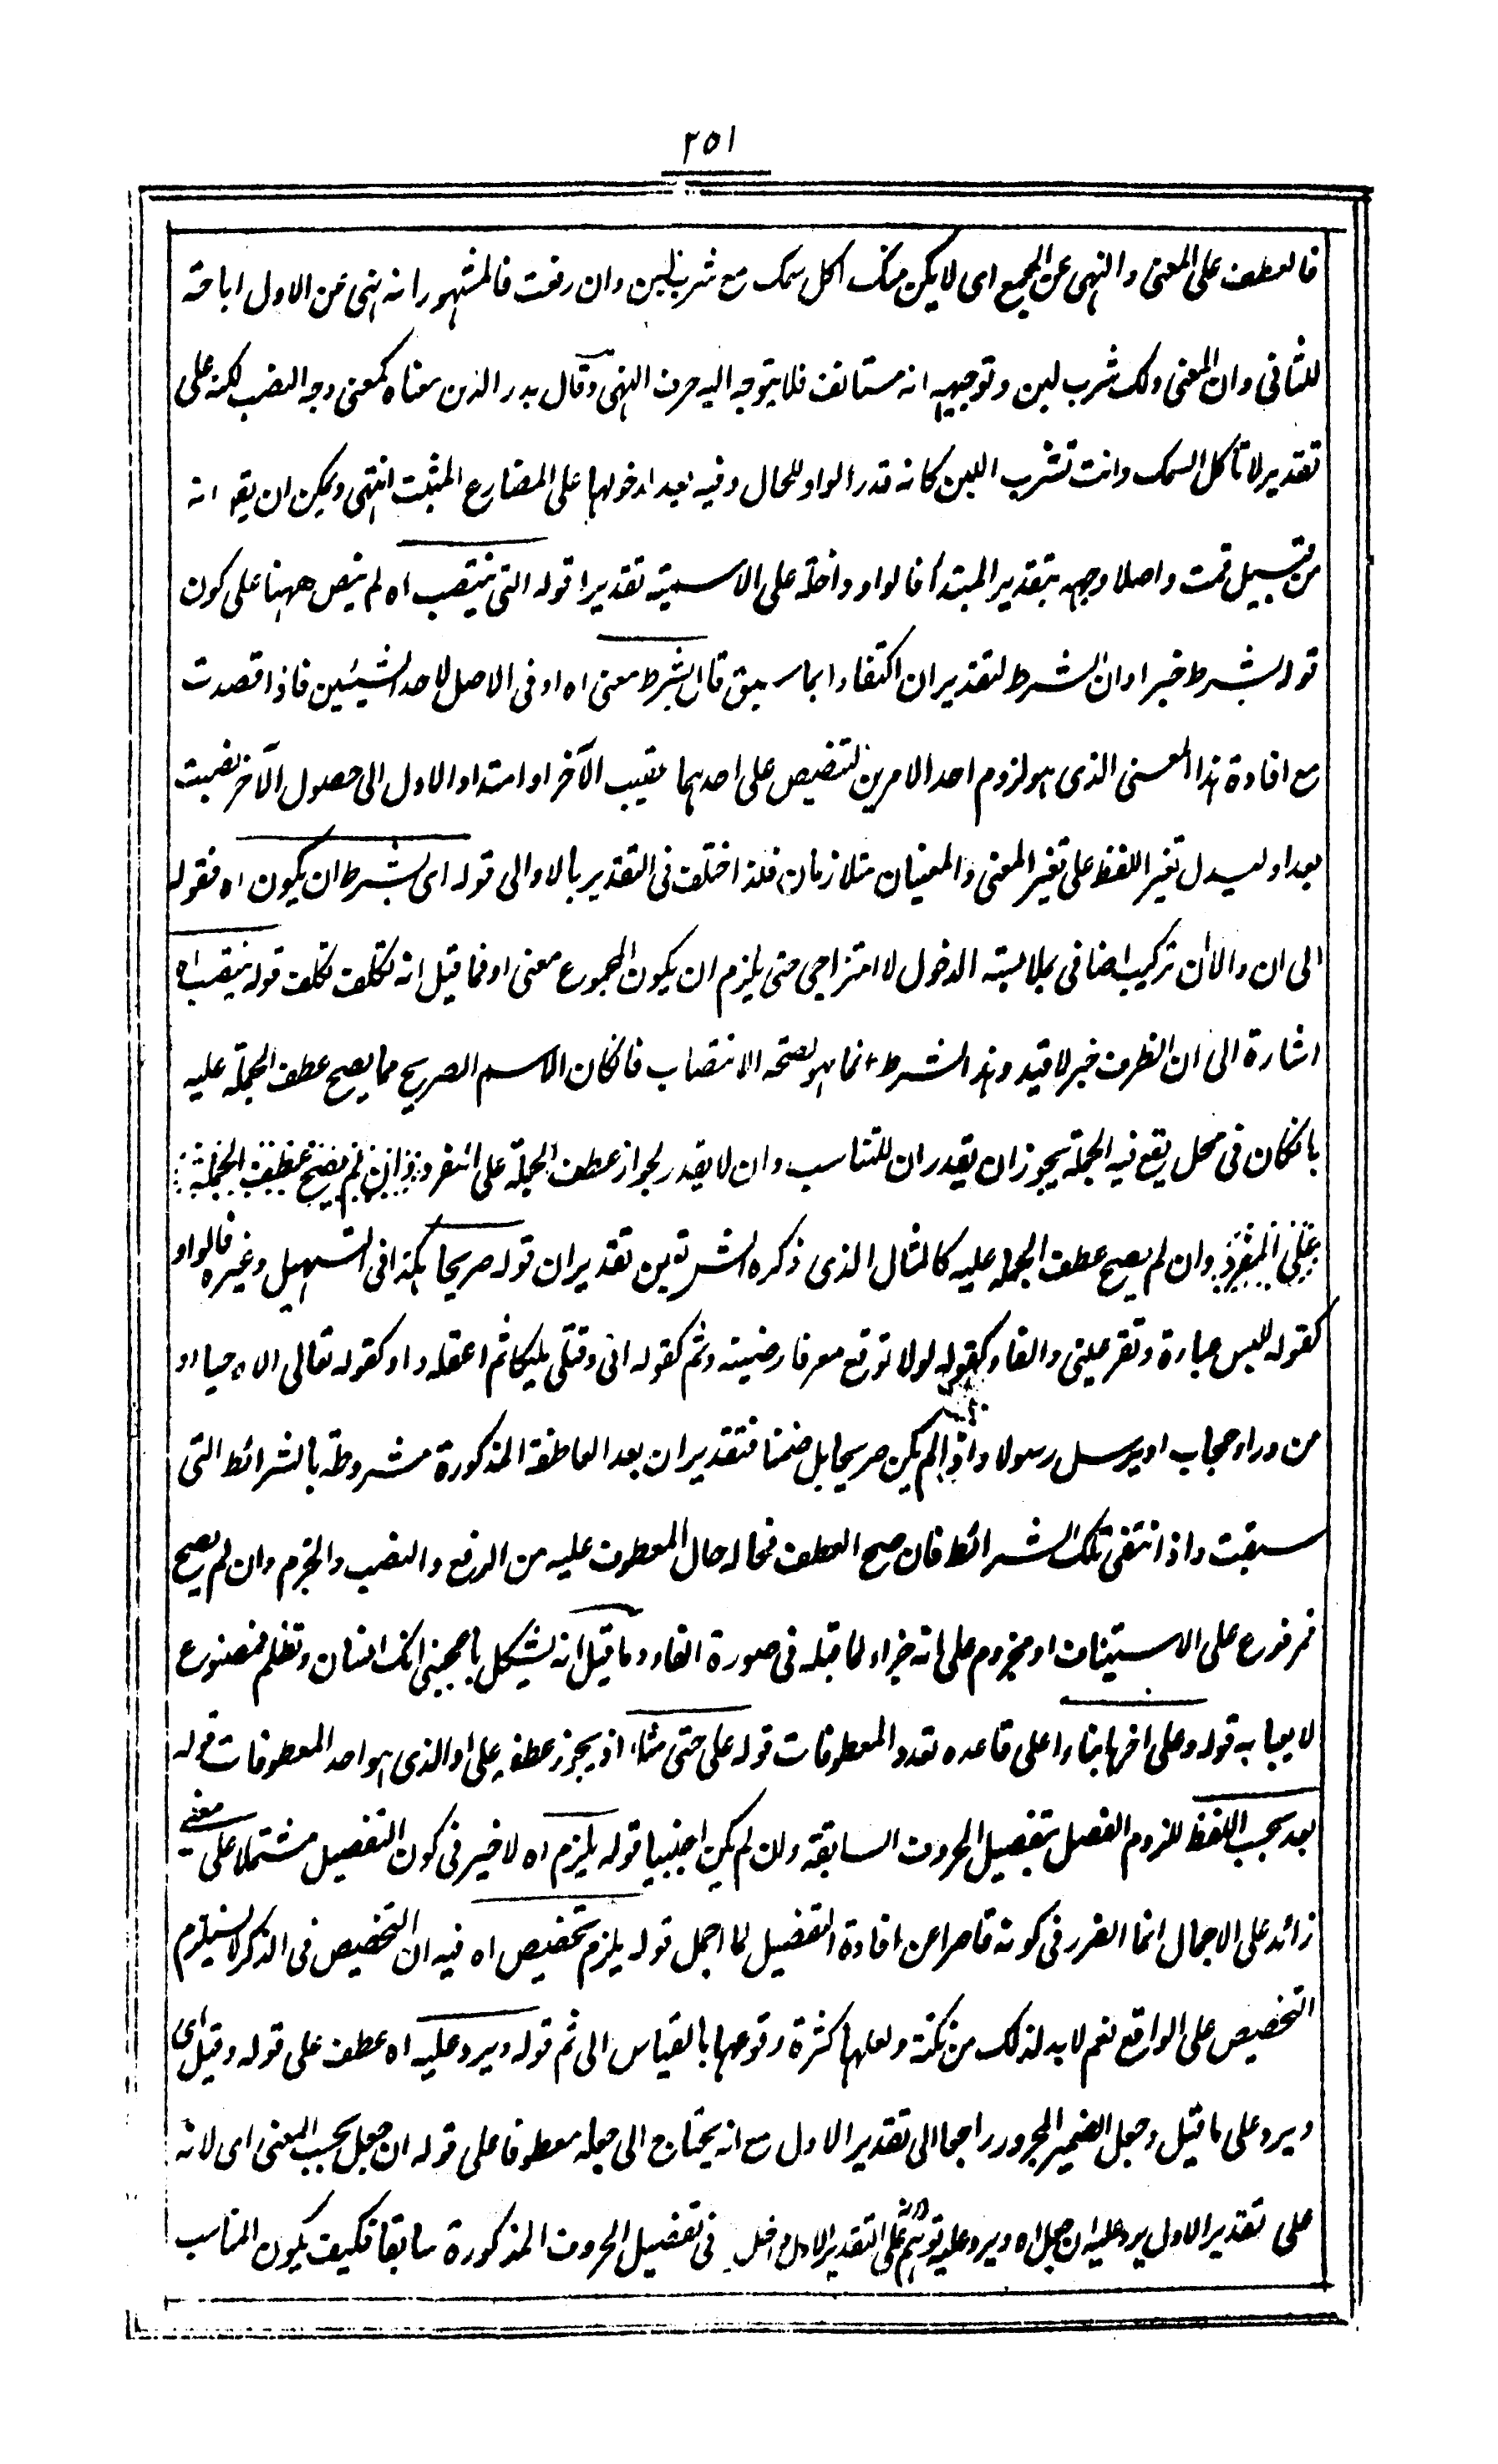 ٢٥١
فالعطف على المعنى والنهى عن الجمع اى لا يكن منك اكل سمك مع شرب لبن وان رفعت فالمشهور انه نهى عن الاول اباحة
للثانى وان المعنى ولك شرب لبن وتوجيهه انه مستانف فلا يتوجه اليه حرف النهى وقال بدر الدين معناه كمعنى وجه النصب لكنه على
تقدير لا تاكل السمك وانت تشرب اللبن كانه قدر الواو للحال وفيه بعد لدخولها على المضارع المثبت انتهى ويمكن ان يقو انه
من قبيل قمت واصك وجهه بتقدير المبتدا فالواو داخلة على الاسمية تقديرا قوله التى ينتصب اه لم ينص ههنا على كون
قوله بشرط خبرا وان الشرط لتقدير ان اكتفاء بما سبق قال بشرط معنى اه او فى الاصل لاحد الشيئين فاذا قصدت
مع افادة هذا المعنى الذى هو لزوم احد الامرين التنصيص على احدهما عقيب الآخر او امتداد الاول الى حصول الآخر نصبت
بعد او ليدل تغير اللفظ على تغير المعنى والمعنيان متلازمان فلذا اختلف فى التقدير بالا والى قوله اى بشرط ان يكون اه فقوله
الى ان والا ان تركيب اضافى بملابسة الدخول لا امتزاجى حتى يلزم ان يكون المجموع معنى او فما قيل انه تكلف تكلف قوله ينتصب اه
اشارة الى ان الظرف خبر لا قيد وهذا الشرط انما هو لصحة الانتصاب فان كان الاسم الصريح مما يصح عطف الجملة عليه
بان كان فى محل يقع فيه الجملة يجوز ان يقدر ان للتناسب وان لا يقدر لجواز عطف الجملة على المفرد وان لم يصح عطف الجملة
على المفرد وان لم يصح عطف الجملة عليه كالمثال الذى ذكره الشر تعين تقدير ان قوله صريحا هكذا فى التسهيل وغيره فالواو
كقوله للبس عباءة وتقر عينى والفاء كقوله لولا توقع معرفا رضيته وثم كقوله انى وقتلى سليكا ثم اعقله واو كقوله تعالى الا وحيا او
من وراء حجاب او يرسل رسولا واذا لم يكن صريحا بل ضمنا فتقدير ان بعد العاطفة المذكورة مشروطة بالشرائط التى
سبقت واذا انتفى تلك الشرائط فان صح العطف فحاله حال المعطوف عليه من الرفع والنصب والجزم وان لم يصح
فمرفوع على الاستيناف او مجزوم على انه جزاء لما قبله فى صورة الفاء وما قيل انه يشكل باعجبنى انك انسان وتظلم فمصنوع
لا يعبا به قوله وعلى اخرها بناء على قاعده تعدد المعطوفات قوله على حتى مثلا اذ يجوز عطفه على او الذى هو احد المعطوفات قوله
بعد بحسب اللفظ للزوم الفصل بتفصيل الحروف السابقة وان لم يكن اجنبيا قوله يلزم اه لا خير فى كون التفصيل مشتملا على معنى
زائد على الاجمال انما الضرر فى كونه قاصرا عن افادة التفصيل لما اجمل قوله يلزم تخصيص اه فيه ان التخصيص فى الذكر لا يستلزم
التخصيص على الواقع نعم لا بد لذلك من نكتة ولعلها كثرة وقوعها بالقياس الى ثم قوله ويرد عليه اه عطف على قوله وقيل اى
ويرد على ما قيل وجعل الضمير المجرور راجعا الى تقدير الاول مع انه يحتاج الى جعله معطوفا على قوله ان جعل بحسب المعنى اى لانه
على تقدير الاول يرد عليه ان جعل اه ويرد عليه على التقدير الاول فى تفصيل الحروف المذكورة سابقا فكيف يكون المناسب